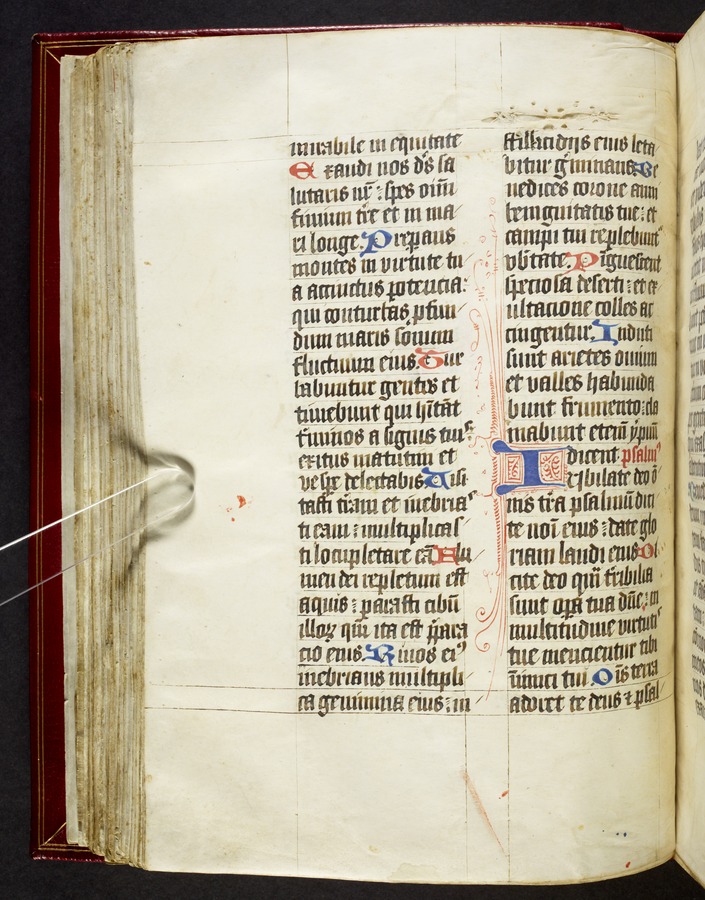 mirabile in equitate
Exaudi nos ds sa
lutaris nr : spes oīm
finium tre et in ma
ri longe. Preparans
montes in virtute tu
a accinctus potencia :
qui conturbas pfun
dum maris sonum
fluctuum eius. Tur
babuntur gentes et
timebunt qui hītāt
fīminos a signis tuis
exitus matutini et
vespe delectabis. Uisi
tasti trām et inebrias
ti eam : multiplicas
ti locupletare eā. Flu
men dei repletum est
aquis : parasti cibū
illoꝝ qm̄ ita est p̄para
cio eius. Riuos eiꝰ
inebrians multipli
ca genimina eius : in
stillicidijs eius leta
bitur gīminans. Be
nedices corone anni
benignitatis tue : et
campi tui replebuntʳ
vbtate. Pīguescent
speciosa deserti : et ex
ultacione colles ac
cingentur. Induti
sunt arietes ouium
et valles habunda
bunt frumento : cla
mabunt etem ympnū
dicent psalmꝰ
Iubilate deo ō
nis trā psalmū dici
te noī eius : date glo
riam laudi eius. Di
cite deo qm̄ tribilia
sunt opa tua dn̄e : in
multitudine virtutis
tue mencientur tibi
inimici tui. Oīs terra
adoret te deus ⁊ psal